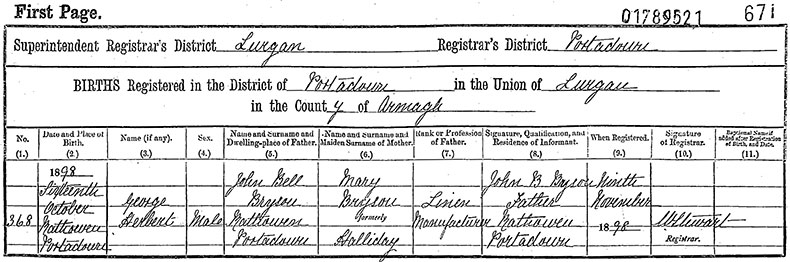 First Page.
01789521 671
Superintendent Registrar's District Lurgan Registrar's District Portadown
BIRTHS Registered in the District of Portadown in the Union of Lurgan
in the County of Armagh
No. Date and Place of Birth. Name (if any). Sex. Name and Surname and Dwelling-place of Father. Name and Surname and Maiden Surname of Mother. Rank or Profession of Father. Signature, Qualification, and Residence of Informant. When Registered. Signature of Registrar. Baptismal Name if added after Registration of Birth, and Date.
(1.) (2.) (3.) (4.) (5.) (6.) (7.) (8.) (9.) (10.) (11.)
368
1898
Sixteenth
October
Portadown
George
Herbert
Male
John Bell
Bryson
Portadown
Mary
Bryson
formerly
Halliday
Linen
Manufacturer
John B Bryson
Father
Portadown
Ninth
November
1898
W Stewart
Registrar.